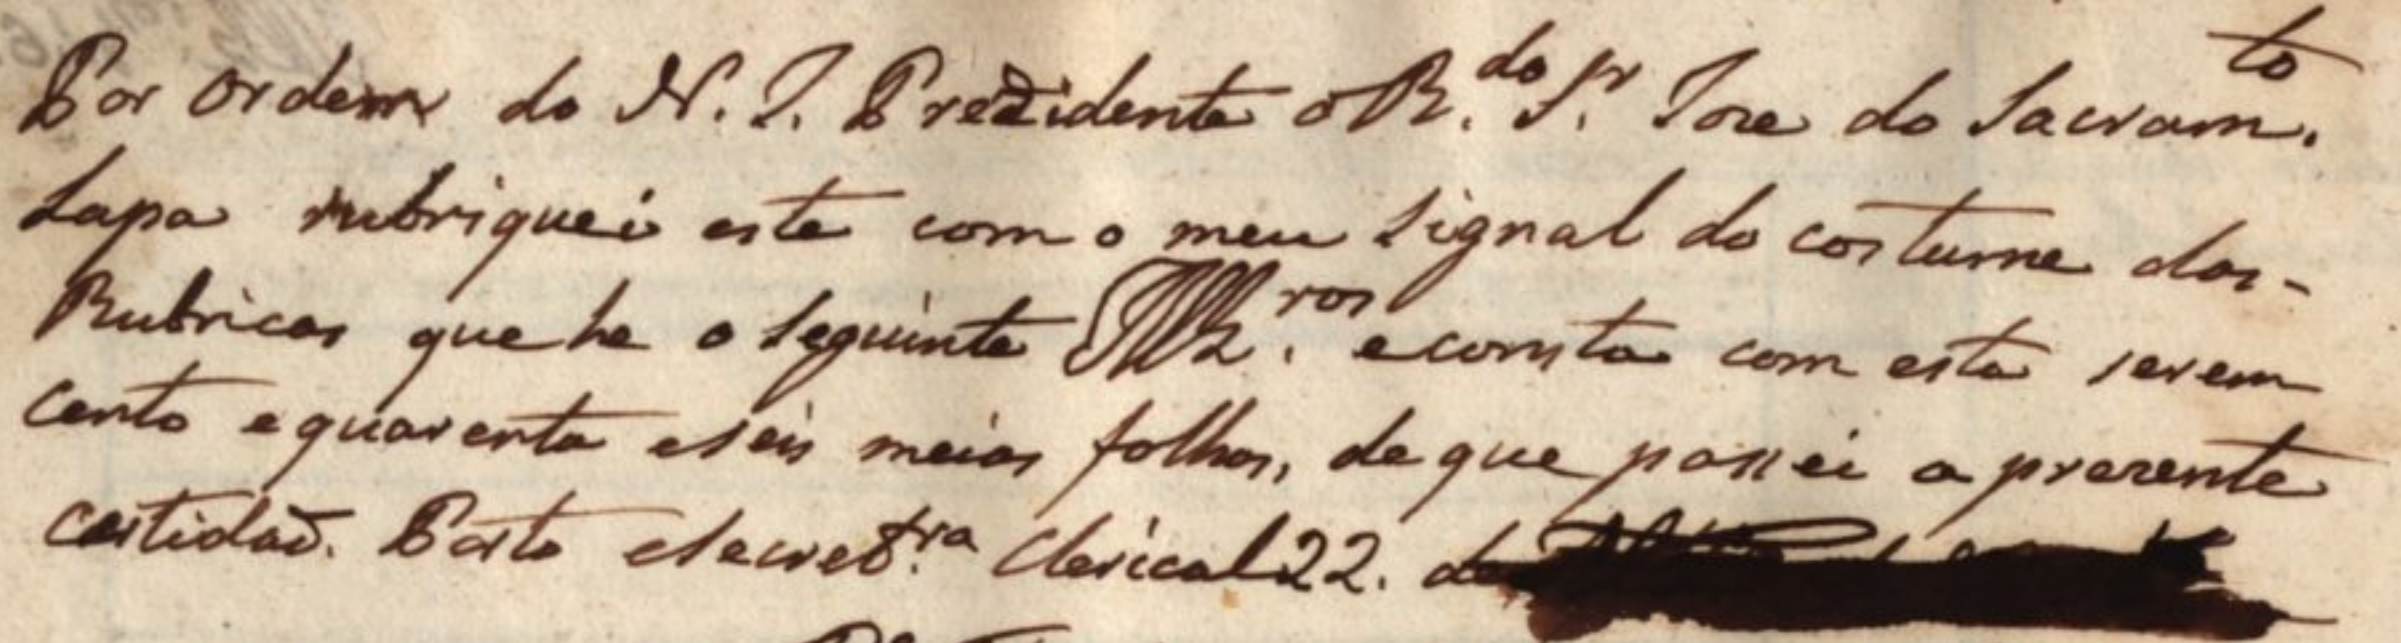 Por ordem do N. I. Prezidente o R.do S.r Joze do Sacram.to
Lapa rubriquei este com o meu signal do costume das-
Rubricas que he o seguinte e consta com esta serem
cento e quarenta e seis meias folhas, de que passei a prezente
certidaõ. Porto e Secret.ra Clerical 22. de